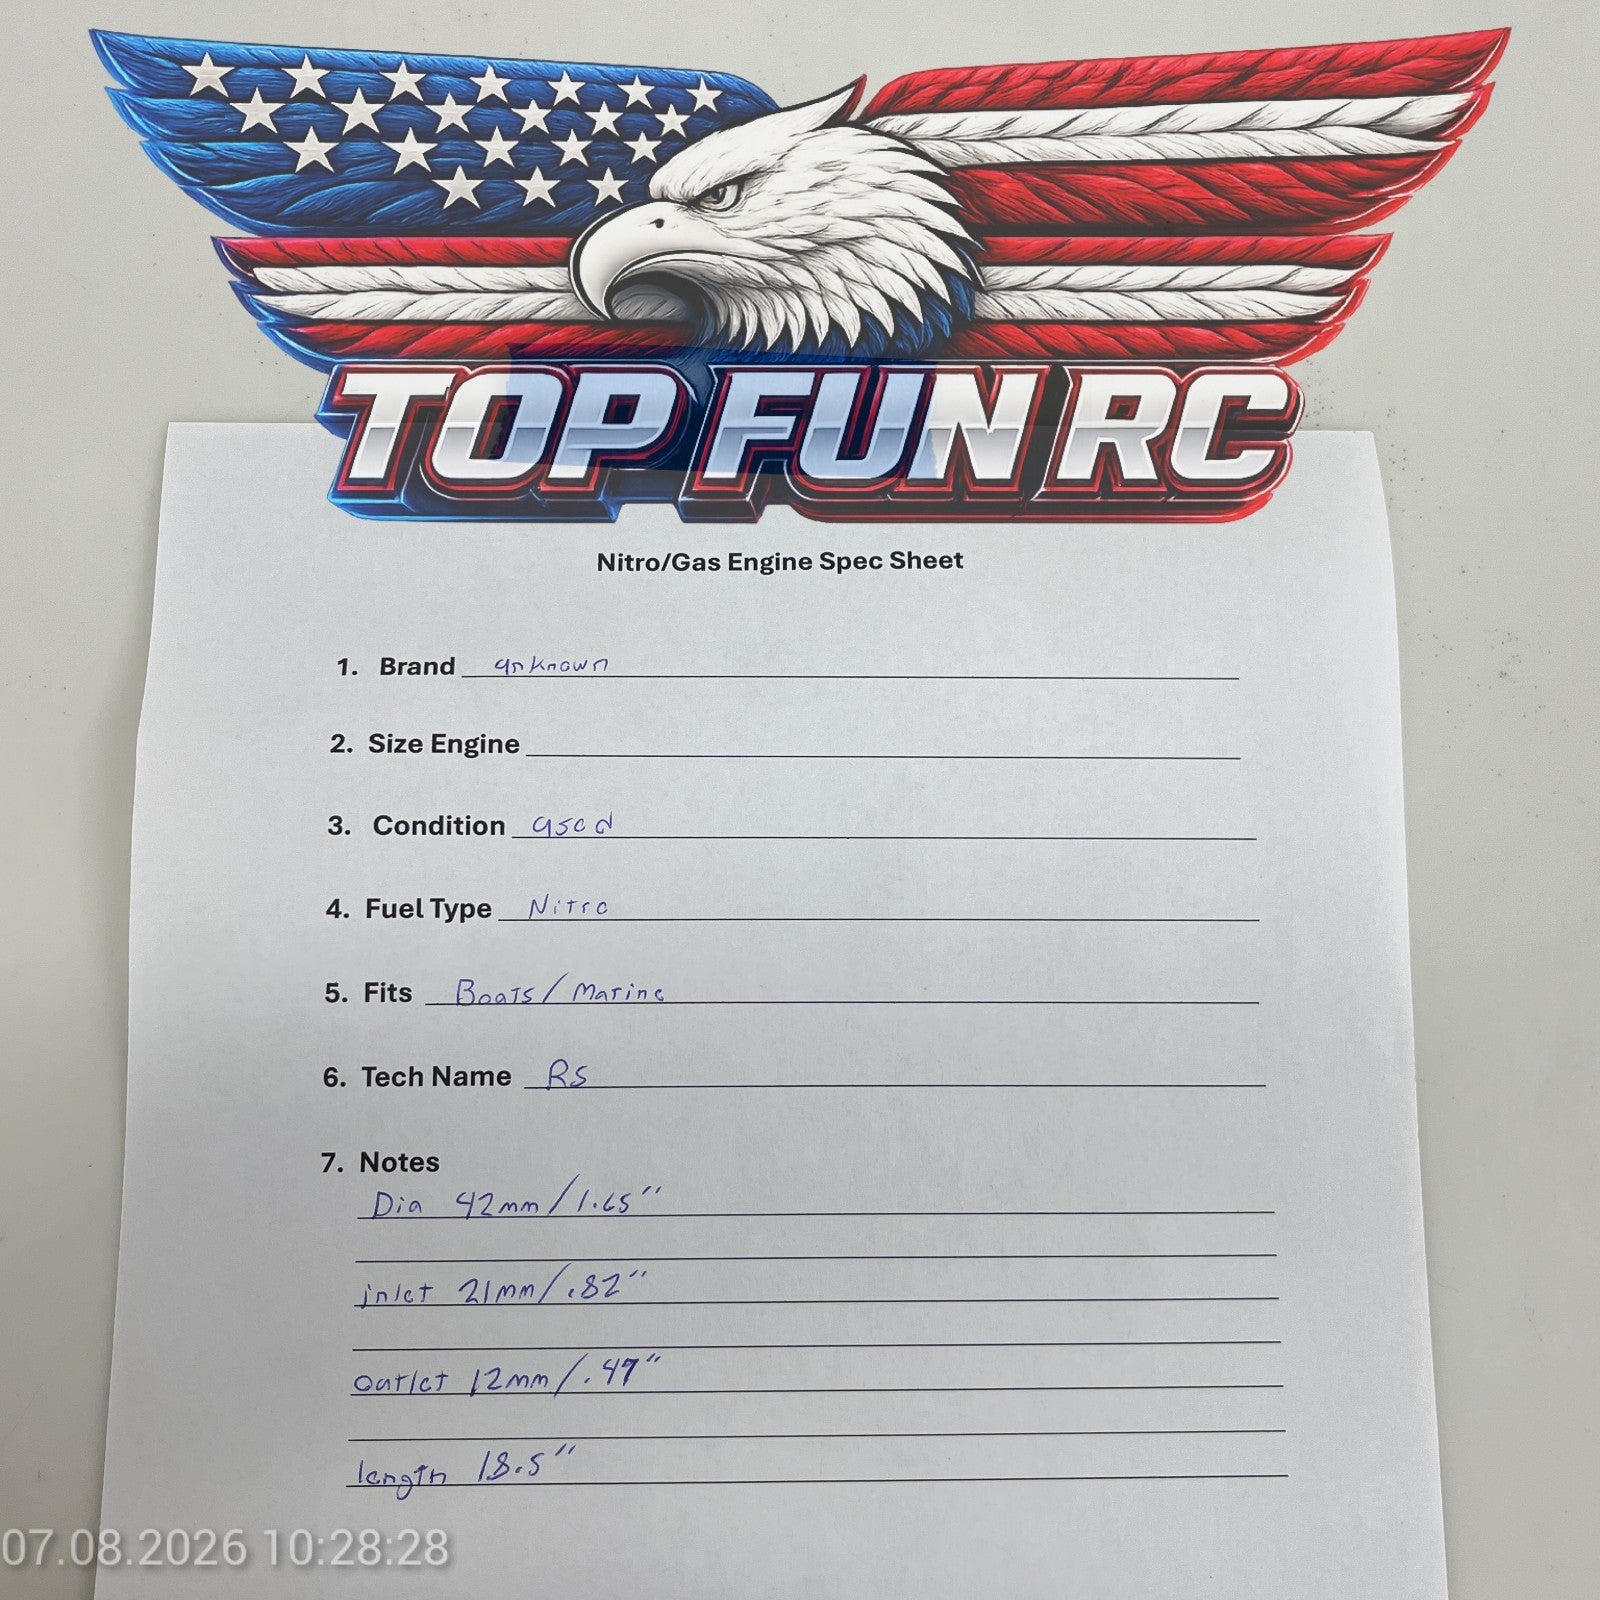 TOP FUN RC
Nitro/Gas Engine Spec Sheet
1. Brand unknown
2. Size Engine
3. Condition used
4. Fuel Type Nitro
5. Fits Boats/Marine
6. Tech Name RS
7. Notes
Dia 42mm/1.65"
inlet 21mm/.82"
outlet 12mm/.47"
length 18.5"
07.08.2026 10:28:28